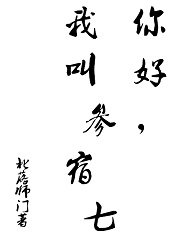 你好，
我叫参宿七
北落师门著